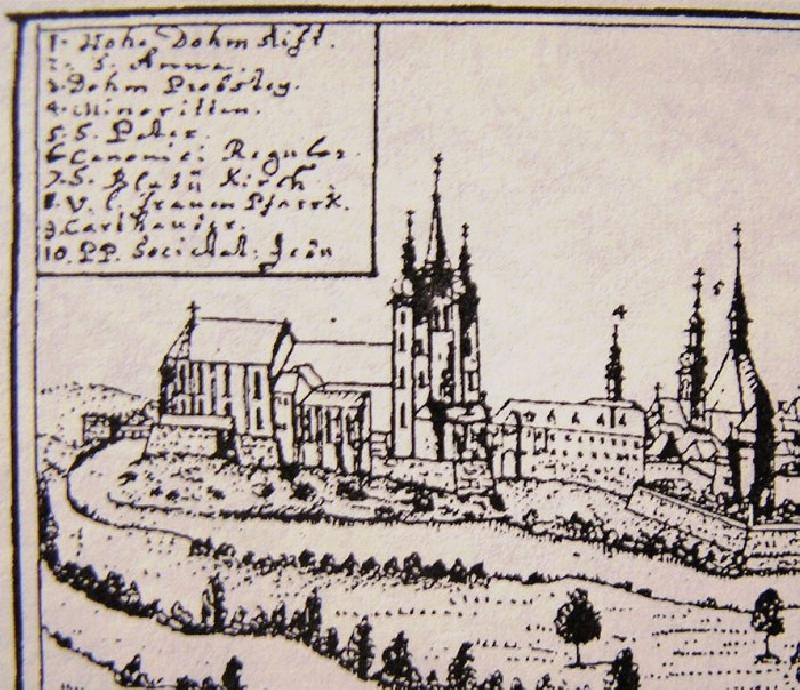 1. Hohe Dohm stift.
2. S. Anna.
3. Dohm Probsteÿ.
4. Minoritten.
5. S. Peter.
6. Canonici Regular.
7. S. Blasü Kirch.
8. V. l. frauen Pfarrk.
9. Carthauser.
10. PP. Societat: Jesu
4
5